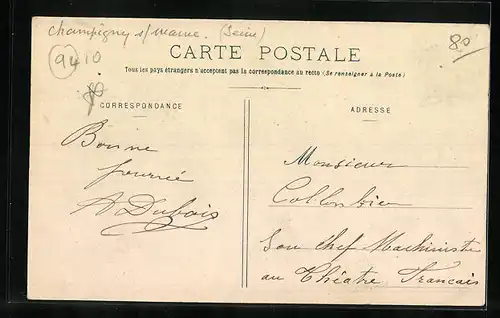 Champigny s/marne. (Seine)
9410
80
CARTE POSTALE
Tous les pays étrangers n'acceptent pas la correspondance au recto (Se renseigner à la Poste)
80
CORRESPONDANCE
Bonne
journée
A Dubois
ADRESSE
Monsieur
Collombier
Sou chef Machiniste
au Théatre Francais